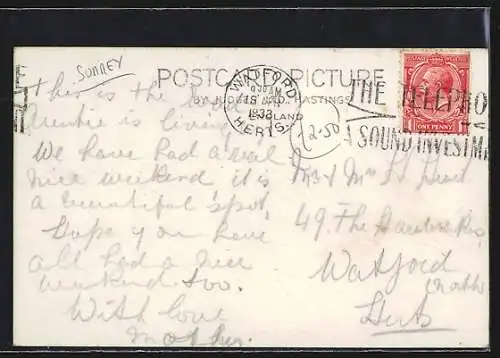 SURREY
POSTCARD PICTURE
BY JUDGES LTD. HASTINGS
ENGLAND
WATFORD
1932
HERTS.
THE TELEPHO
A SOUND INVESTME
ONE PENNY
2.50
this is the
Auntie is living
We have had a real
nice weekend it is
a beautiful spot,
Hope you have
all had a nice
weekend too.
With love
Mother.
Mr & Mrs
49. The
Watford
Herts